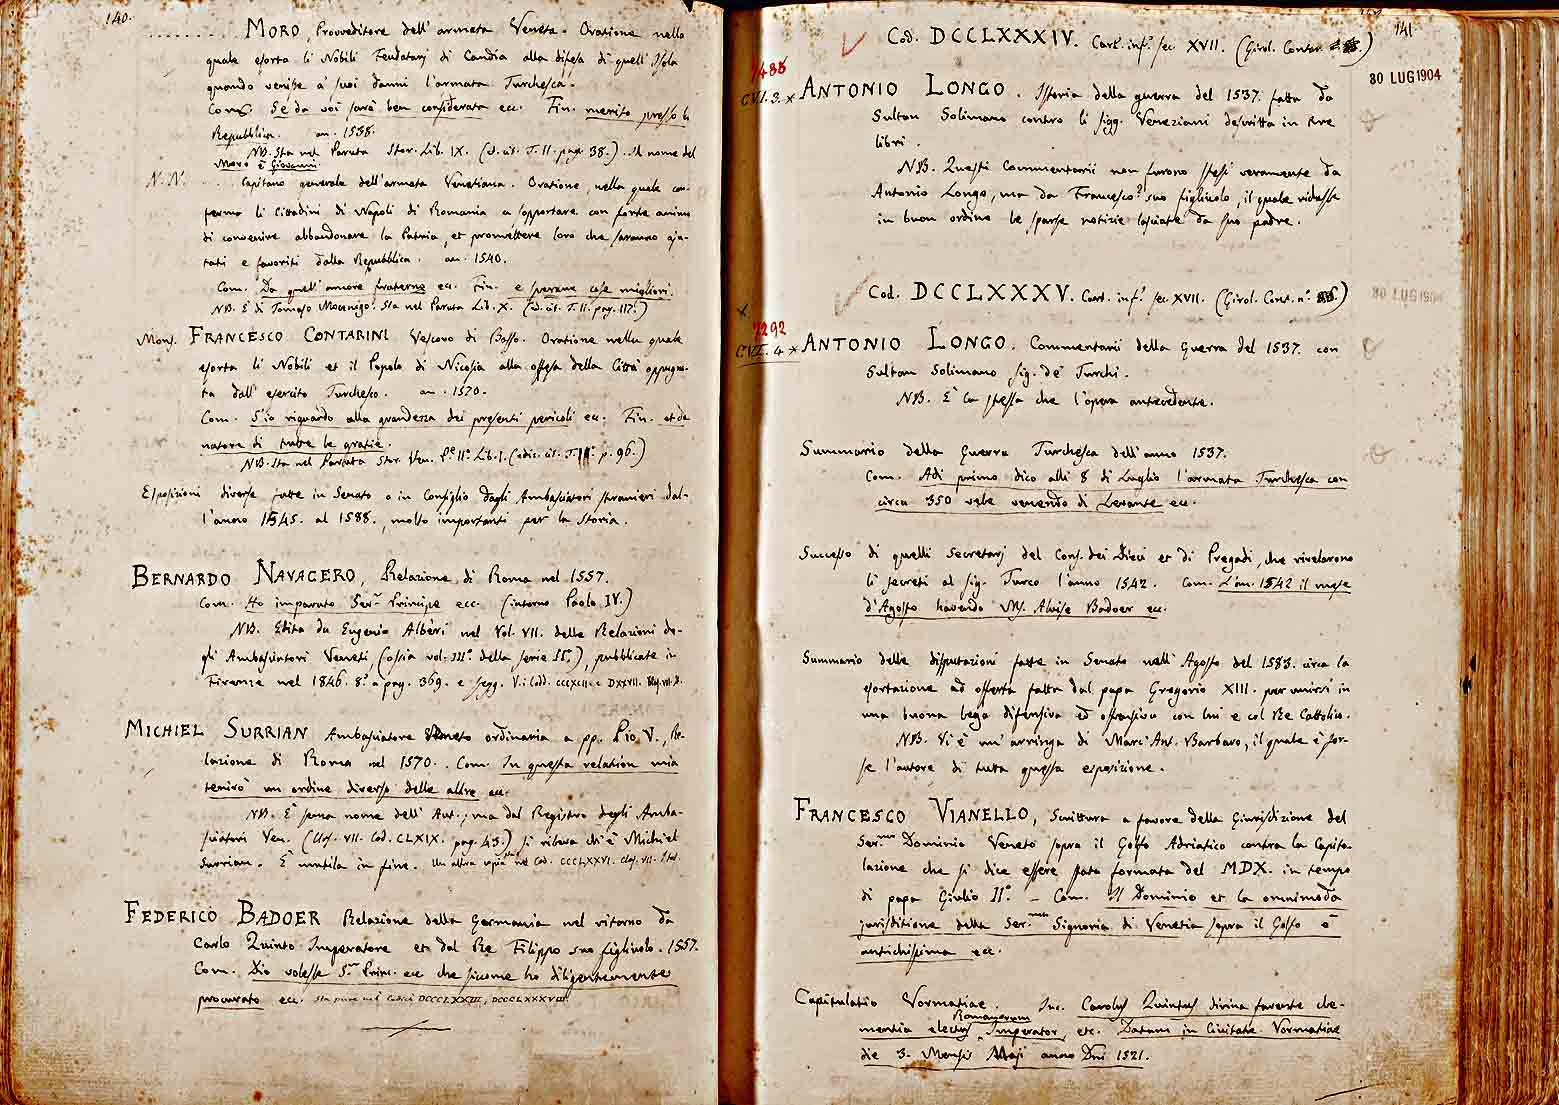 140.
........ MORO Provveditore dell'armata Veneta. Oratione nella
quale esorta li Nobili Feudatarj di Candia alla difesa di quell'Isola
quando venisse a' suoi danni l'armata Turchesca.
Com. Se da voi sarà ben considerata ec. Fin. merito presso la
Repubblica. an. 1538.
NB. Sta nel Paruta Stor. Lib. IX. (ed. cit. T. II. pag. 38.) Il nome del
Moro è Giovanni.
N. N. ... Capitano generale dell'armata Venetiana. Oratione, nella quale con-
ferma li Cittadini di Napoli di Romania a sopportare con forte animo
di convenire abbandonare la Patria, et promettere loro che saranno aju-
tati e favoriti dalla Repubblica. an. 1540.
Com. Da quell'amore fraterno ec. Fin. e sperare cose migliori.
NB. È di Tomaso Mocenigo. Sta nel Paruta Lib. X. (ed. cit. T. II. pag. 117.)
Mons. FRANCESCO CONTARINI Vescovo di Baffo. Oratione nella quale
esorta li Nobili et il Popolo di Nicosia alla offesa della Città oppugna-
ta dall'esercito Turchesco. an. 1570.
Com. S'io riguardo alla grandezza dei presenti pericoli ec. Fin. et do
natore di tutte le gratie.
NB. Sta nel Paruta Stor. Ven. P.e II.a Lib. I. (ediz. cit. T. III. p. 96.)
Esposizioni diverse fatte in Senato o in Consiglio dagli Ambasciatori stranieri dal-
l'anno 1545. al 1588., molto importanti per la Storia.
BERNARDO NAVAGERO, Relazione di Roma nel 1557.
Com. Ho imparato Ser.mo Principe ecc. (intorno Paolo IV.)
NB. Edita da Eugenio Albèri nel Vol. VII. delle Relazioni de-
gli Ambasciatori Veneti, (ossia vol. III.o della serie II.a), pubblicate in
Firenze nel 1846. 8.o a pag. 369. e segg. V. i Codd. CCCXCII e DXXVII.
MICHIEL SURRIAN Ambasciatore Veneto ordinario a pp. Pio V., Re-
lazione di Roma nel 1570. . Com. In questa relation mia
tenirò un ordine diverso delle altre ec.
NB. È senza nome dell'Aut.; ma dal Registro degli Amba-
sciatori Ven. (Clas. VII. Cod. CLXIX. pag. 43.) si rileva ch'è Michiel
Surrian. È mutila in fine. Un altra copia nel Cod. CCCLXXVI. Clas. VII. Ital.
FEDERICO BADOER Relazione della Germania nel ritorno da
Carlo Quinto Imperatore et dal Re Filippo suo figliuolo. 1557.
Com. Dio volesse S.mo Princ. ecc che siccome ho diligentemente
procurato ec. Sta pure nei Codici DCCCCLXXIII, DCCCCLXXXVIII
141.
Cod. DCCLXXXIV. Cart. inf.o sec. XVII. (Girol. Contar.)
30 LUG 1904
7485
C.VI.3. x ANTONIO LONGO. Istoria della guerra del 1537. fatta da
Sultan Solimano contro li Sigg. Veneziani descritta in tre
libri.
NB. Questi Commentarii non furono stesi veramente da
Antonio Longo, ma da Francesco? suo figliuolo, il quale ridusse
in buon ordine le sparse notizie lasciate da suo padre.
Cod. DCCLXXXV. Cart. inf.o sec. XVII. (Girol. Cont. n.o)
x
7292
C.VI. 4 x ANTONIO LONGO. Commentarii della Guerra del 1537. con
Sultan Solimano Sig. de' Turchi.
NB. È la stessa che l'opera antecedente.
Summario della Guerra Turchesca dell'anno 1537.
Com. Adi primo dico alli 8 di Luglio l'armata Turchesca con
circa 350 vele venendo di Levante ec.
Successo di quelli Secretarj del Cons. dei Dieci et di Pregadi, che rivelarono
li secreti al Sig. Turco l'anno 1542. Com. L'an. 1542 il mese
d'Agosto havendo Ms. Alvise Badoer ec.
Summario delle disputazioni fatte in Senato nell'Agosto del 1583. circa la
esortazione ad offerta fatta dal papa Gregorio XIII. per unirsi in
una buona lega difensiva ed offensiva con lui e col Re Cattolico.
NB. Vi è un'arringa di Marc'Ant. Barbaro, il quale è for-
se l'autore di tutta questa esposizione.
FRANCESCO VIANELLO, Scrittura a favore della Giurisdizione del
Ser.mo Dominio Veneto sopra il Golfo Adriatico contra la Capito-
lazione che si dice essere stata formata del MDX. in tempo
di papa Giulio II.o - Com. Il Dominio et la omnimoda
jurisditione della Ser.ma Signoria di Venetia sopra il Golfo è
antichissima ec.
Capitulatio Vormatiae. Inc. Carolus Quintus divina favente cle-
mentia electus Romanorum Imperator, etc. Datum in Civitate Vormatiae
die 3. Mensis Maji anno Dni 1521.